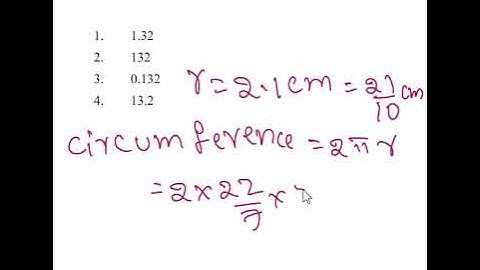 1. 1.32
2. 132
3. 0.132
4. 13.2
r = 2.1cm = 21/10 cm
circumference = 2πr
= 2 × 22/7 ×